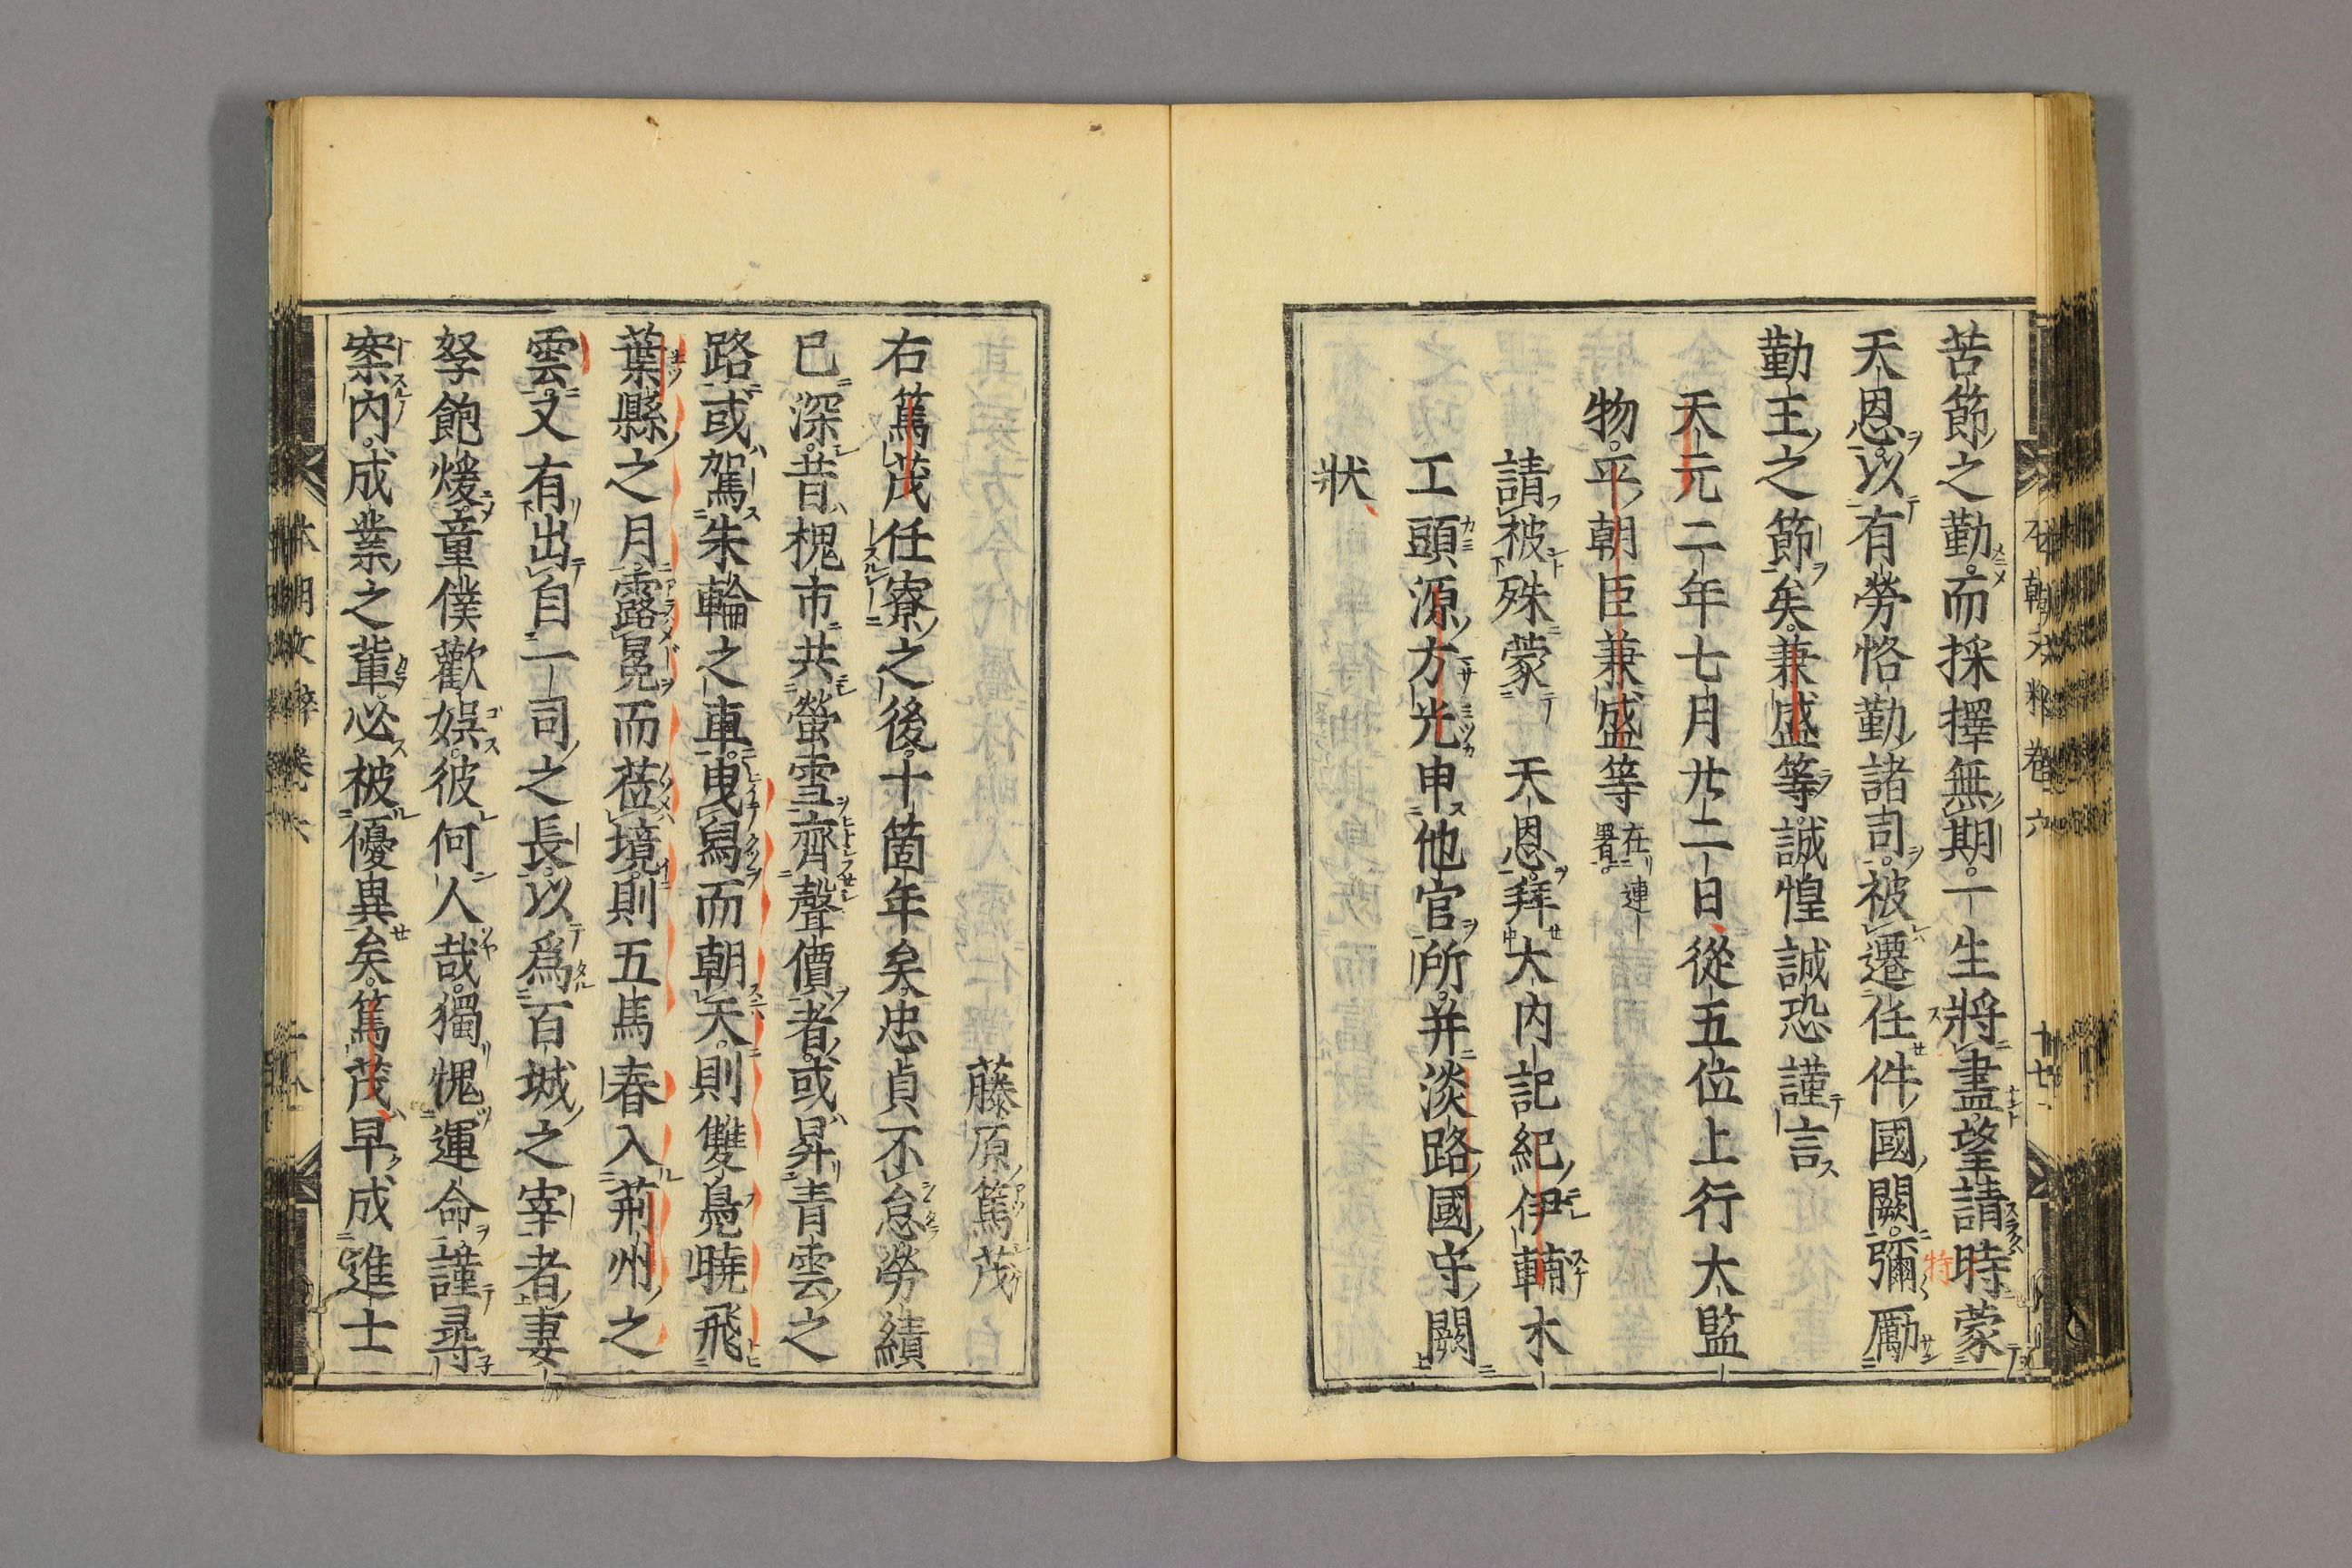 苦節之勤而採擇無期一生將盡望請時蒙
天恩以有勞恪勤諸司被遷任件國闕彌勵
勤王之節矣兼盛等誠惶誠恐謹言
天元二年七月廿二日從五位上行大監
物平朝臣兼盛等在連署
請被殊蒙 天恩拜大內記紀伊輔木
工頭源方光申他官所并淡路國守闕
狀
藤原篤茂
右篤茂任寮之後十箇年矣忠貞不怠勞績
已深昔槐市共螢雪齊聲價者或昇青雲之
路或駕朱輪之車曳舄而朝天則雙鳧曉飛
葉縣之月露冕而莅境則五馬春入荊州之
雲又有出自一司之長以爲百城之宰者妻
孥飽煖童僕歡娛彼何人哉獨愧運命謹尋
案內成業之輩必被優異矣篤茂早成進士